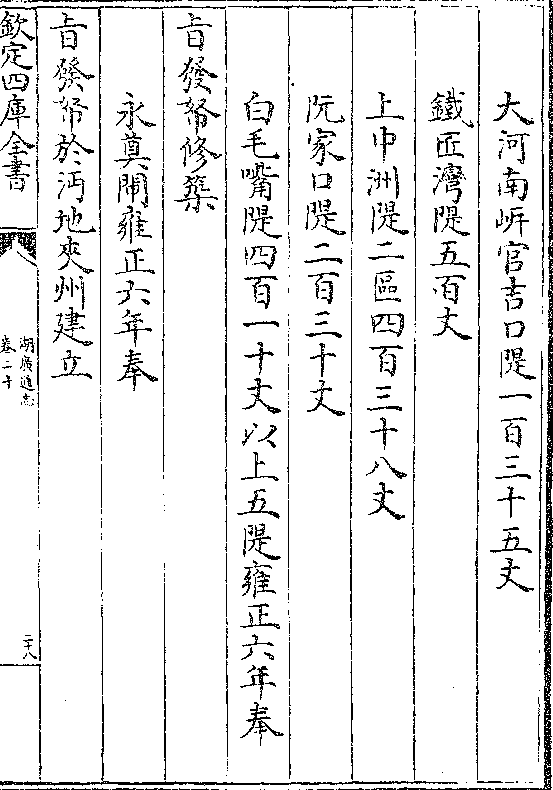 大河南岍官吉口隄一百三十五丈
鐵匠灣隄五百丈
上中洲隄二區四百三十八丈
阮家口隄二百三十丈
白毛嘴隄四百一十丈以上五隄雍正六年奉
旨發帑修築
永奠閘雍正六年奉
旨發帑於沔地夾州建立
欽定四庫全書
湖廣通志
卷二十
二十八